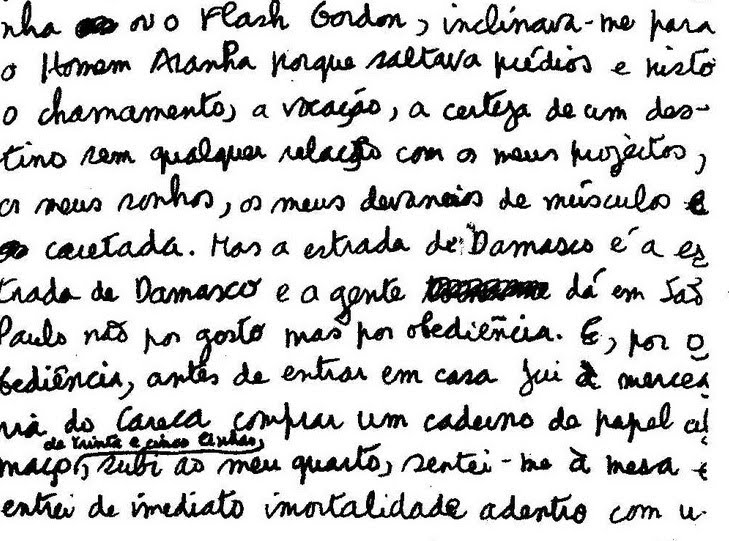 nha ou o Flash Gordon, inclinava-me para
o Homem Aranha porque saltava prédios e nisto
o chamamento, a vocação, a certeza de um des-
tino sem qualquer relação com os meus projectos,
os meus sonhos, os meus devaneios de músculo e
cacetada. Mas a estrada de Damasco é a es
trada de Damasco e a gente dá em São
Paulo não por gosto mas por obediência. E, por o
bediência, antes de entrar em casa fui à mercea
ria do Careca comprar um caderno de papel al
de trinta e cinco linhas,
maço, subi ao meu quarto, sentei-me à mesa e
entrei de imediato imortalidade adentro com u